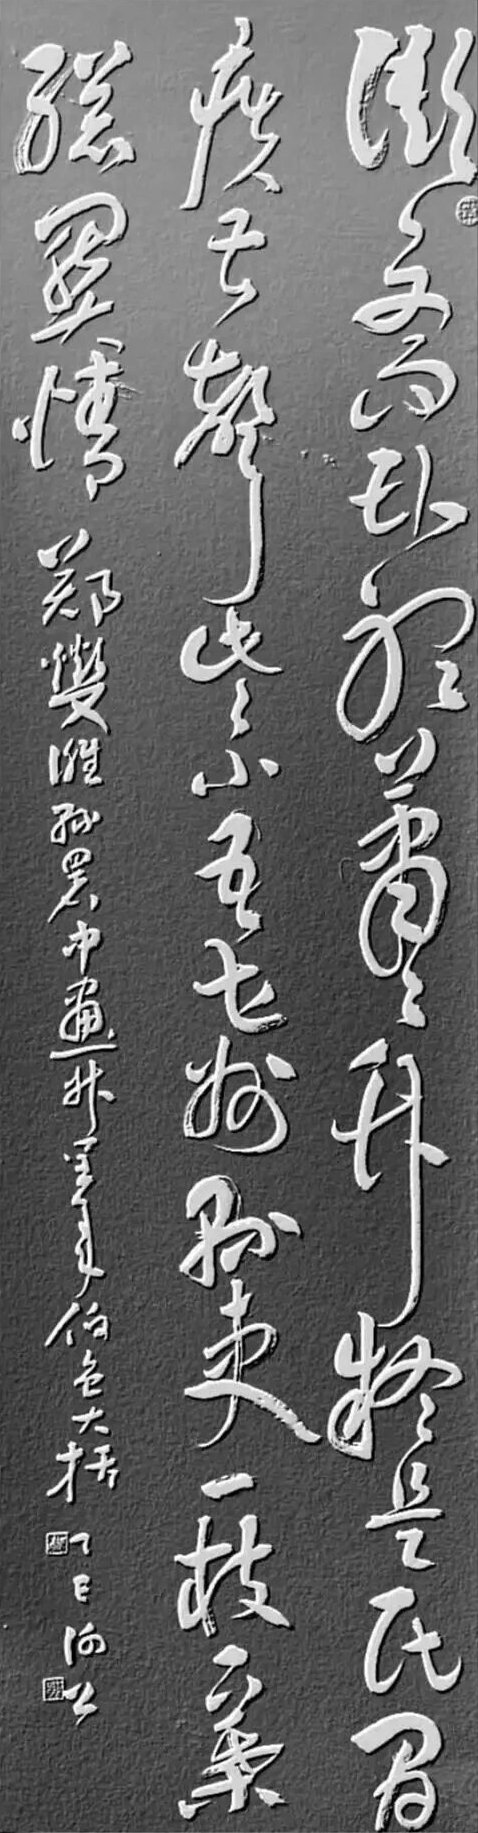 衙斋卧听萧萧竹疑是民间
疾苦声些小吾曹州县吏一枝一叶
总关情 郑燮潍县署中画竹呈年伯包大中丞括 乙巳